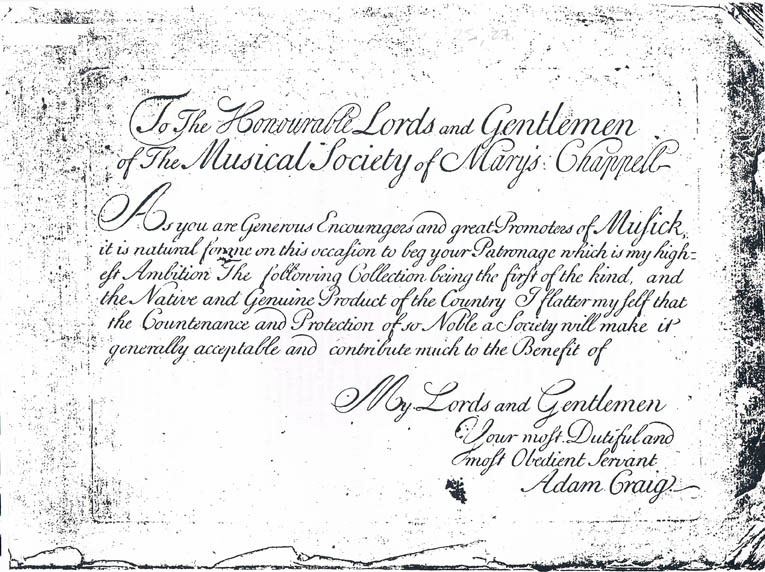 To The Honourable Lords and Gentlemen
of The Musical Society of Mary's Chappell
As you are Generous Encouragers and great Promoters of Musick,
it is natural for me on this occasion to beg your Patronage which is my high=
est Ambition The following Collection being the first of the kind, and
the Native and Genuine Product of the Country I flatter my self that
the Countenance and Protection of so Noble a Society will make it
generally acceptable and contribute much to the Benefit of
My Lords and Gentlemen
Your most Dutiful and
most Obedient Servant
Adam Craig